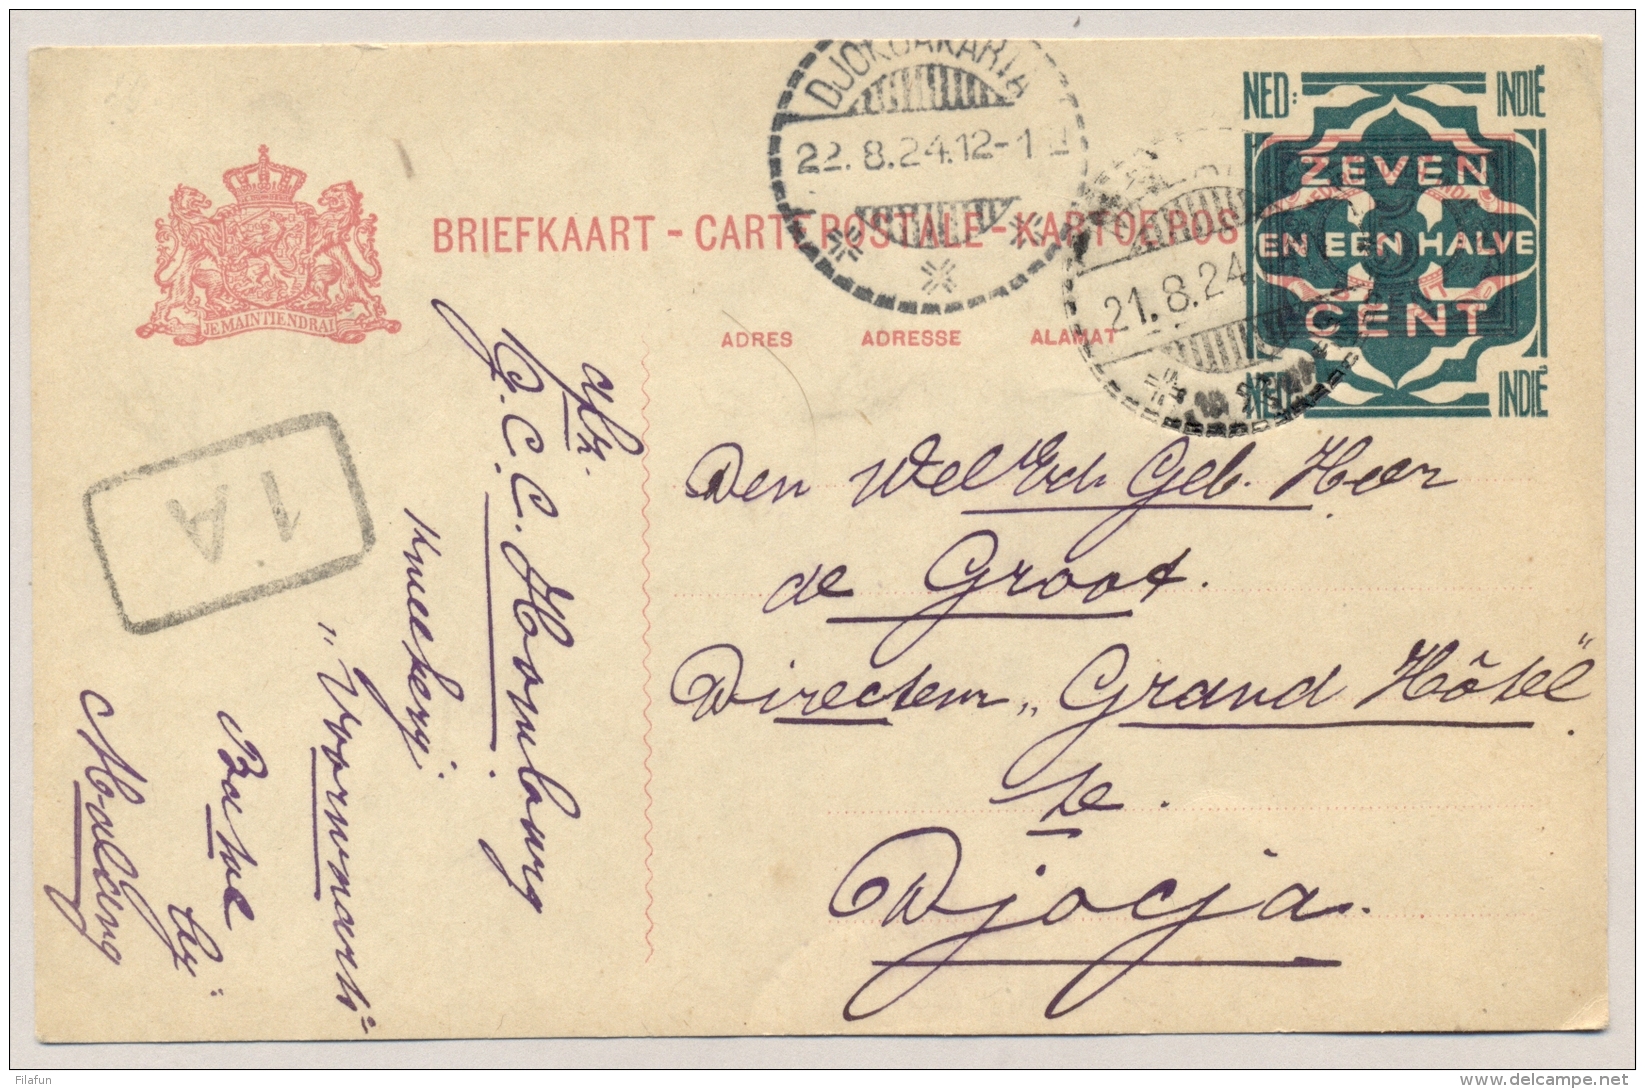 DJOKJAKARTA
22.8.24.12-1 N
21.8.24
NED: INDIË
ZEVEN
EN EEN HALVE
CENT
NED: INDIË
JE MAINTIENDRAI
BRIEFKAART - CARTE POSTALE - KARTOEPOS
ADRES ADRESSE ALAMAT
1 A
Den Wel Ed. Geb. Heer
de Groot.
Directeur „Grand Hôtel"
te.
Djocja.
afz.
C. C. Hornburg
Kweekerij
Batoe
bij
Malang
Filafun
www.delcampe.net